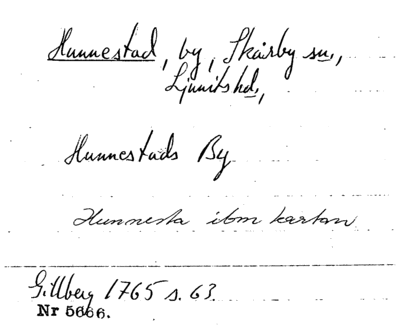 Hunnestad, by, Skårby sn.,
Ljunits hd.,
Hunnestads By
Hunnesta ibm kartan
Gillberg 1765 s. 63.
Nr 5666.